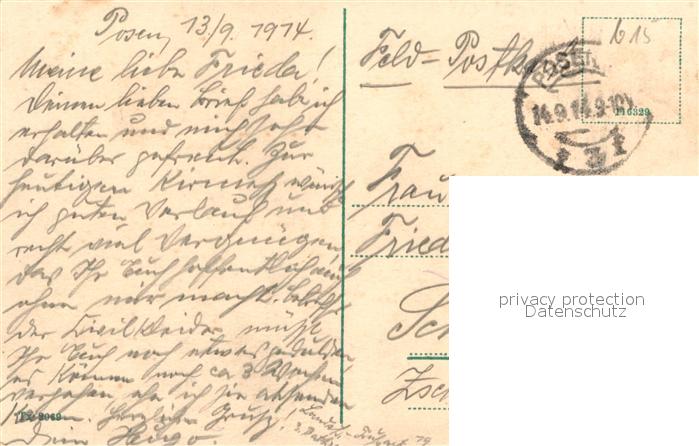 Posen, 13/9. 1914.
Meine liebe Frieda!
Deinen lieben Brief habe ich
erhalten und mich sehr
darüber gefreut. Zur
heutigen Kirmeß wünsche
ich guten Verlauf und
recht viel Vergnügen,
das Ihr Euch hoffentlich auch
ohne mir macht. Betreffs
der Civilkleider müßt
Ihr Euch noch etwas gedulden
es können noch ca 3 Wochen
vergehen ehe ich sie absenden
kann. Herzlichen Gruß!
Dein Hugo.
Feld-Postkarte
b 15
POSEN
14.9.14.9-10V.
116329
Frau
Fried
Sch
Zsch
privacy protection
Datenschutz